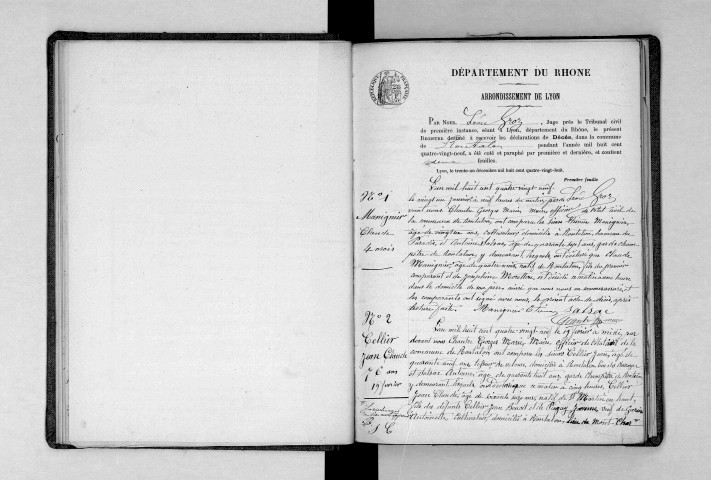 DÉPARTEMENT DU RHONE
ARRONDISSEMENT DE LYON
PAR NOUS, Léon Groz, Juge près le Tribunal civil
de première instance, séant à Lyon, département du Rhône, le présent
REGISTRE destiné à recevoir les déclarations de Décès, dans la commune
de Rontalon pendant l'année mil huit cent
quatre-vingt-neuf, a été coté et paraphé par première et dernière, et contient
feuilles.
Lyon, le trente-un décembre mil huit cent quatre-vingt-huit.
Première feuille
Léon Groz
No 1
Manignier
Claude
4 mois
L'an mil huit cent quatre-vingt neuf
le vingt un Janvier à neuf heures du matin, par de
vant nous Claude Georges Marie Maire officier de l'état civil de
la commune de Rontalon, ont comparu les sieurs Etienne Manignier,
âgé de vingt ans, cultivateur domicilié à Rontalon, hameau de
et Antoine Salsac, âgé de quarante six ans, garde cham
pêtre de Rontalon y demeurant, lesquels ont déclaré que Claude
Manignier, âgé de quatre mois, natif de Rontalon, fils du premier
comparant et de Josephine est décédé ce matin à une heure
dans le domicile de son père, ainsi que nous nous en sommes assuré, et
les comparants ont signé avec nous, le présent acte de décès, après
lecture faite. Manignier Etienne Salsac
No 2
Cellier
Jean Claude
76 ans
19 février
L'an mil huit cent quatre-vingt neuf le 19 février à midi, par
devant nous Claude Georges Marie, Maire officier de l'état civil de la
commune de Rontalon ont comparu les sieurs Cellier Jean, âgé de
quarante neuf ans tisseur de velours, domicilié à Rontalon,
et Salsac Antoine, âgé de quarante huit ans, garde champêtre de Rontalon
y demeurant lesquels ont déclaré que ce matin à cinq heures, Cellier
Jean Claude, âgé de soixante seize ans, natif de St Martin en haut,
fils des défunts Cellier Jean Benoit et de Jeanne veuf de
Antoinette, cultivateur, domicilié à Rontalon, lieu de Mont
S C